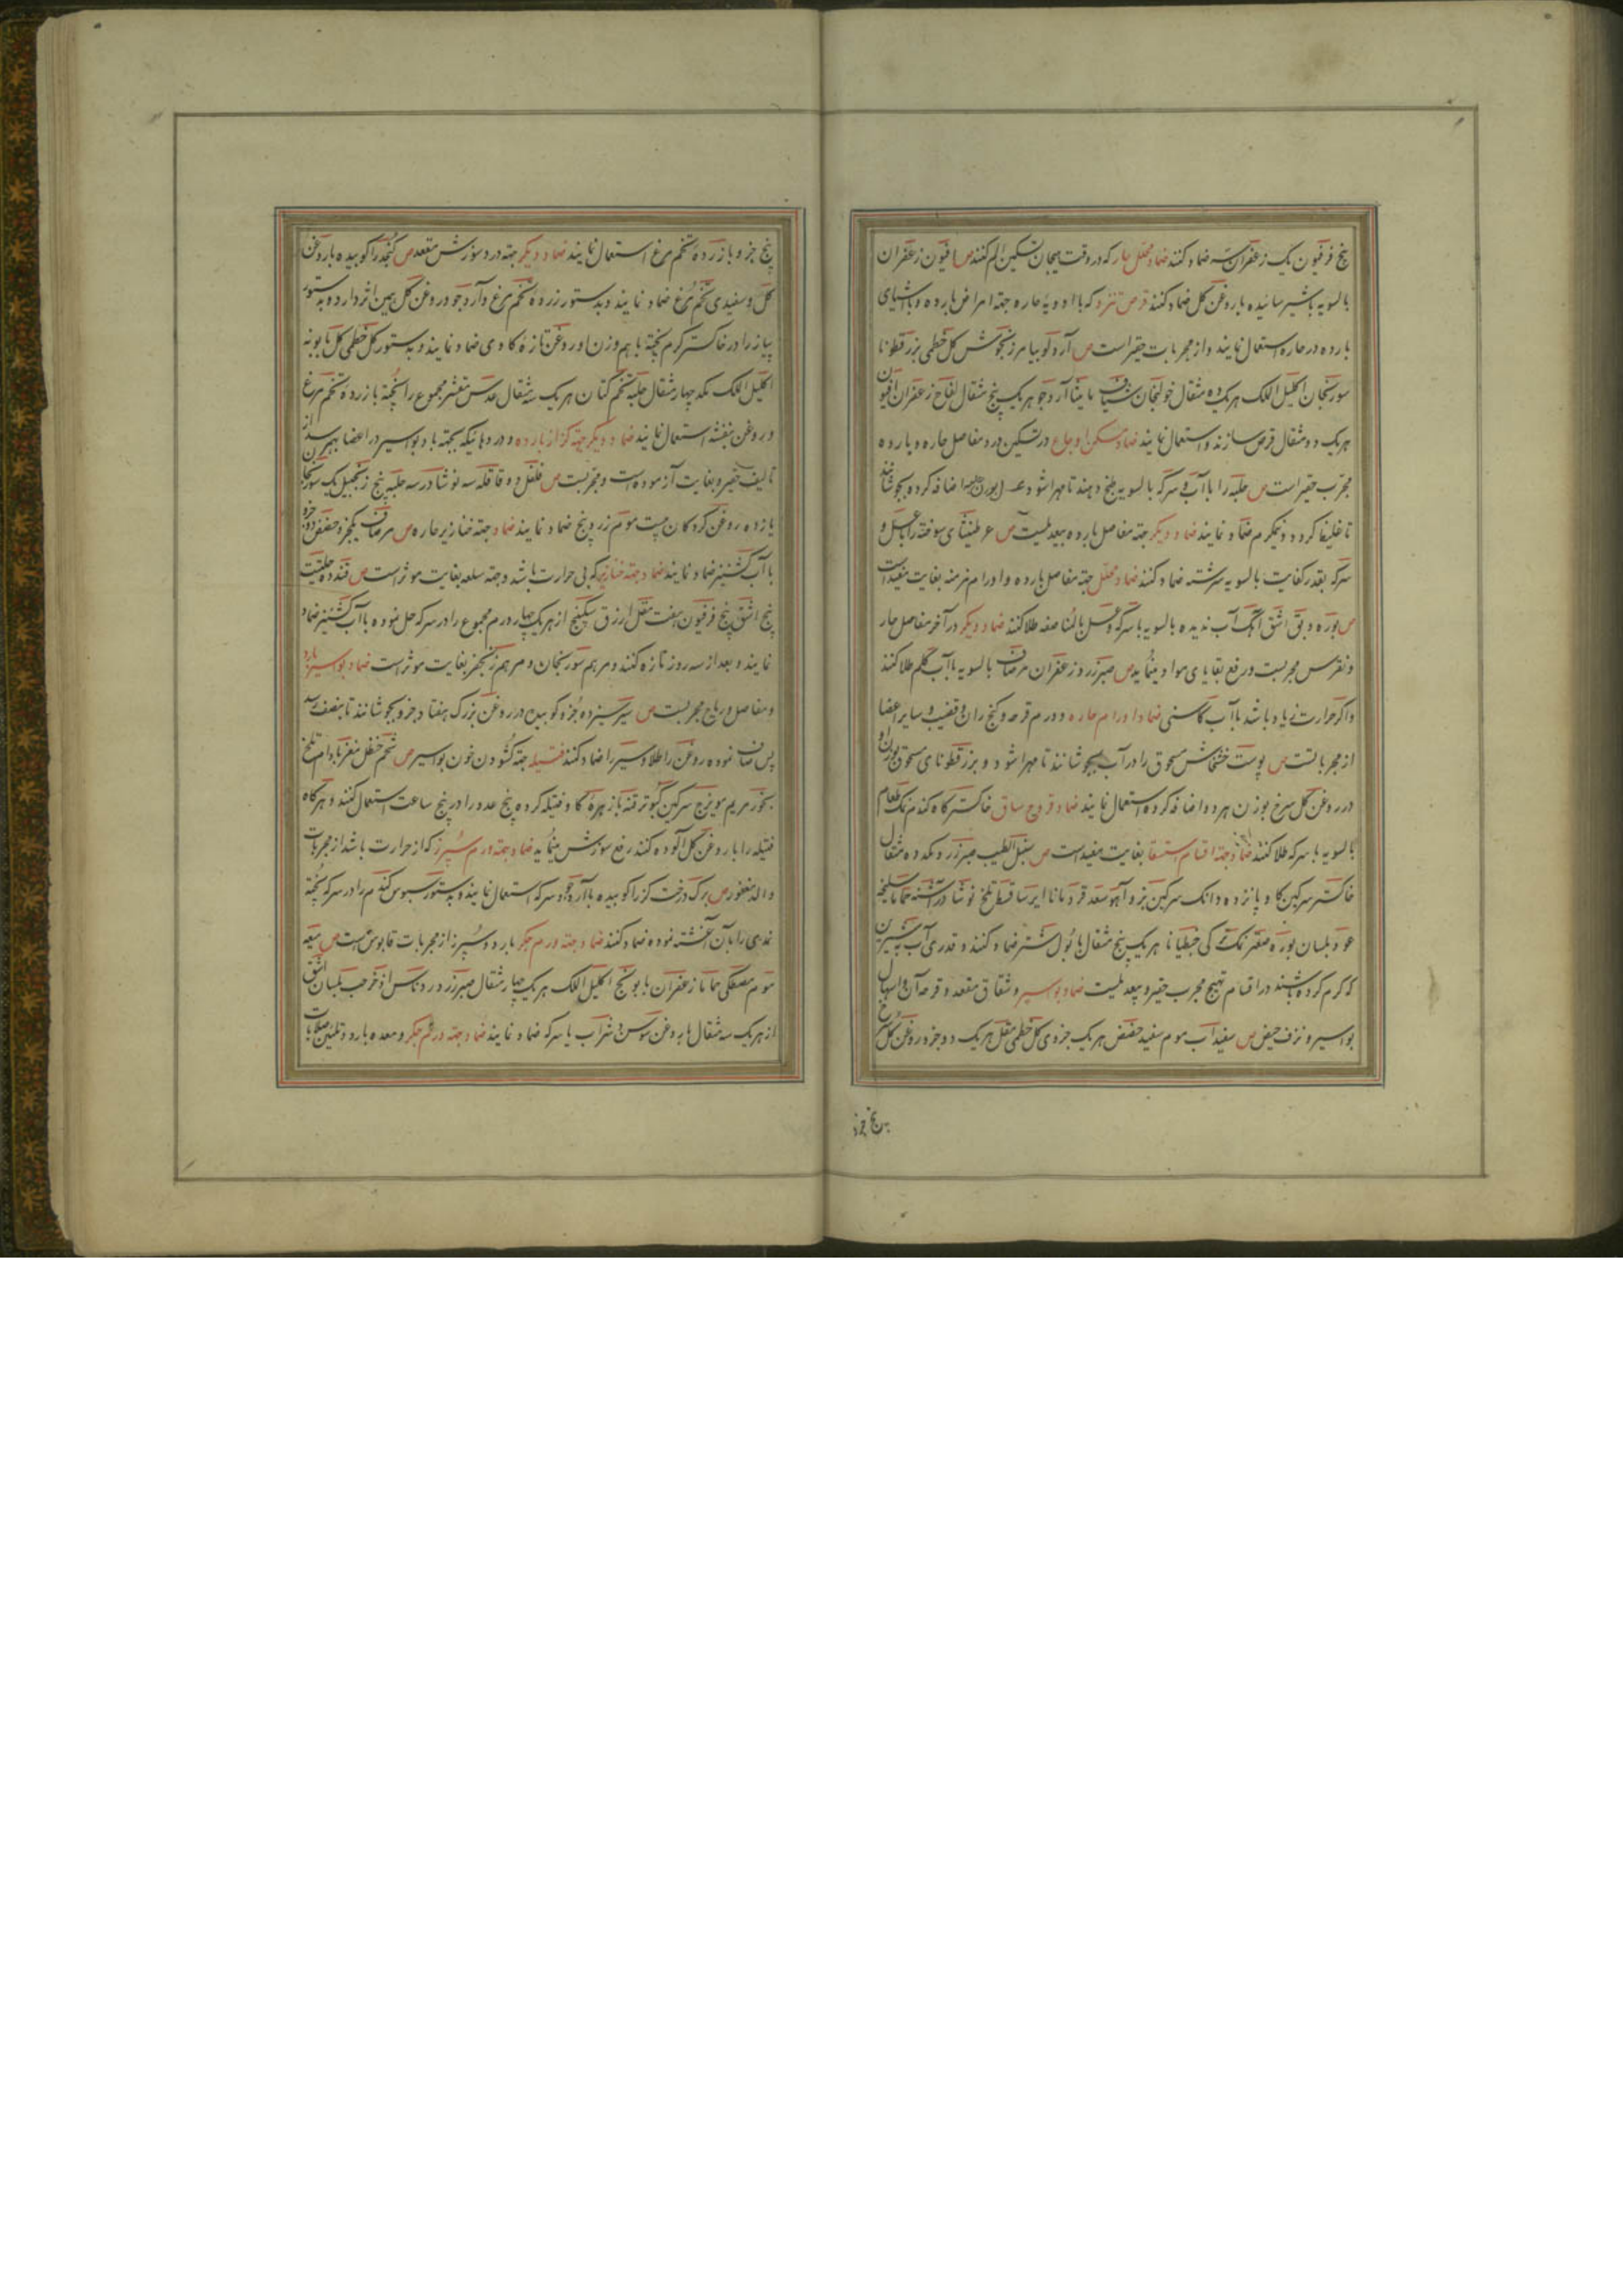 پنج فرفیون یک زعفران سه ضماد کنند ضماد محلل حار که در وقت هیجان تسکین الم کنند ص افیون زعفران
بالسویه با شیر سائیده با روغن گل ضماد کنند قرص نزد که با ادویهٔ حاره جهة امراض بارده و باشیای
بارده در حاره استعمال نمایند و از مجربات حقیر است ص آرد لوبیا مرزنجوش گل خطمی بزرقطونا
سورنجان اکلیل الملک هریک ده مثقال خولنجان شیاف مامیثا آرد جو هریک پنج مثقال لفاح زعفران افیون
هریک دو مثقال قرص سازند و استعمال نمایند ضماد مسکن اوجاع در تسکین درد مفاصل حاره و بارده
مجرب حقیر است ص حلبه را با آب و سرکه بالسویه طبخ دهند تا مهرا شود اضافه کرده بجوشانند
تا غلیظ گردد و نیمگرم ضماد نمایند ضماد دیگر جهة مفاصل بارده بیعدیلست ص عرطنیثای سوخته را با عسل و
سرکه بقدر کفایت بالسویه سرشته ضماد کنند ضماد محلل جهة مفاصل بارده و اورام مزمنه بغایت مفید است
ص بوره دبق اشق آهک آب ندیده بالسویه با سرکه و عسل بالمناصفه طلا کنند ضماد دیگر در آخر مفاصل حار
و نقرس مجربست و رفع بقایای مواد مینماید ص صبر زرد زعفران مرصاف بالسویه با آب کلم طلا کنند
و اگر حرارت زیاد باشد با آب کاسنی ضماد اورام حاره و ورم قرحه و کنج ران و قضیب و سایر اعضا
از مجرباتست ص پوست خشخاش مسحوق را در آب بجوشانند تا مهرا شود و بزرقطونای مسحوق بوزن او
در روغن گل سرخ بوزن هر دو اضافه کرده استعمال نمایند ضماد قروح ساق خاکستر کاه گندم نمک طعام
بالسویه با سرکه طلا کنند ضماد جهة اقسام استسقا بغایت مفید است ص سنبل الطیب صبر زرد مکد ده مثقال
خاکستر سرگین گاو پانزده دانک سرگین بز و آهو سعد قردمانا ایرسا قسط تلخ نوشادر اشنه حماما سلیخه
عود بلسان بوره صعتر نمک ترکی جنطیانا هریک پنج مثقال با بول شتر ضماد کنند و قدری آب پنیر شیرین
که گرم کرده باشند در اقسام تهیج مجرب حقیر و بیعدیلست ضماد بواسیر و شقاق مقعد و قرحه آن و اسهال
بواسیر و نزف حیض ص سفیدآب موم سفید حضض هریک جزوی گل خطمی مقل هریک دو جزو روغن گل سرخ
پنج جزو
پنج جزو با زردهٔ تخم مرغ استعمال نمایند ضماد دیگر جهة درد و سوزش مقعد ص کنجد را کوبیده با روغن
گل و سفیدی تخم مرغ ضماد نمایند و بدستور زردهٔ تخم مرغ و آرد جو و روغن گل همین اثر دارد و بدستور
پیاز را در خاکستر گرم پخته با هموزن او روغن تازهٔ گاوی ضماد نمایند و بدستور گل خطمی گل بابونه
اکلیل الملک مکد چهار مثقال حلبه تخم کتان هریک سه مثقال عدس مقشر مجموع را پخته با زردهٔ تخم مرغ
و روغن بنفشه استعمال نمایند ضماد دیگر جهة کزاز بارده و دردهائیکه بجهة باد بواسیر در اعضا بهم رسد از
تالیف حقیر و بغایت آزموده است و مجربست ص فلفل ده قاقله سه نوشادر سه حلبه پنج زنجبیل یک سورنجان
یازده روغن گردکان بیست موم زرد پنج ضماد نمایند ضماد جهة خنازیر حاره ص مرصاف یکجزو حضض دو جزو
با آب کشنیز ضماد نمایند ضماد جهة خنازیر که بی حرارت باشد و جهة سلعه بغایت موثر است ص قنه ده حلتیت
پنج اشق پنج فرفیون هفت مقل ازرق سکبینج از هریک چهار درم مجموع را در سرکه حل نموده با آب کشنیز ضماد
نمایند و بعد از سه روز تازه کنند و مرهم سورنجان و مرهم زنجفر بغایت موثر است ضماد بواسیر بارد
و مفاصل و ریاح مجربست ص سیر سیزده جزو کوبیده در روغن بزرک هفتاد جزو بجوشانند تا بنصف رسد
پس صاف نموده روغن را طلا و سیر را ضماد کنند فتیله جهة گشودن خون بواسیر ص شحم حنظل مغز بادام تلخ
بخور مریم مویزج سرگین کبوتر قنه با زهرهٔ گاو فتیله کرده پنج عدد را در پنج ساعت استعمال کنند و هرگاه
فتیله را با روغن گل آلوده کنند رفع سوزش مینماید ضماد جهة ورم سپرز که از حرارت باشد از مجربات
والد مغفور ص برگ درخت گز را کوبیده با آرد جو و سرکه استعمال نمایند و بدستور سبوس گندم را در سرکه پخته
نمدی را بآن آغشته نموده ضماد کنند ضماد جهة ورم جگر بارد و سپرز از مجربات قابوس است ص میعه
موم مصطکی حماما زعفران بابونج اکلیل الملک هریک چهار مثقال صبر زرد ورد آس اذخر حب بلسان اشق
از هریک سه مثقال با روغن سوسن و شراب یا سرکه ضماد نمایند ضماد جهة ورم جگر و معده بارد و تلیین صلابات